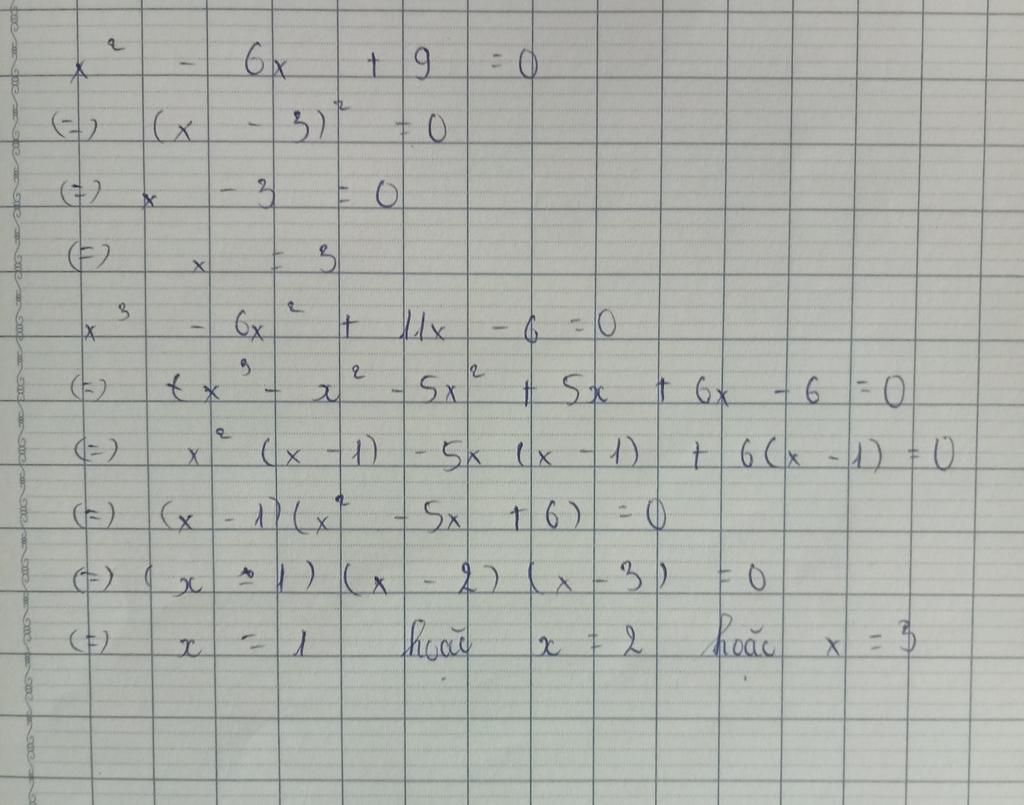 x² - 6x + 9 = 0
(=) (x - 3)² = 0
(=) x - 3 = 0
(=) x = 3
x³ - 6x² + 11x - 6 = 0
(=) x³ - x² - 5x² + 5x + 6x - 6 = 0
(=) x² (x - 1) - 5x (x - 1) + 6(x - 1) = 0
(=) (x - 1)(x² - 5x + 6) = 0
(=) (x - 1) (x - 2) (x - 3) = 0
(=) x = 1 hoặc x = 2 hoặc x = 3